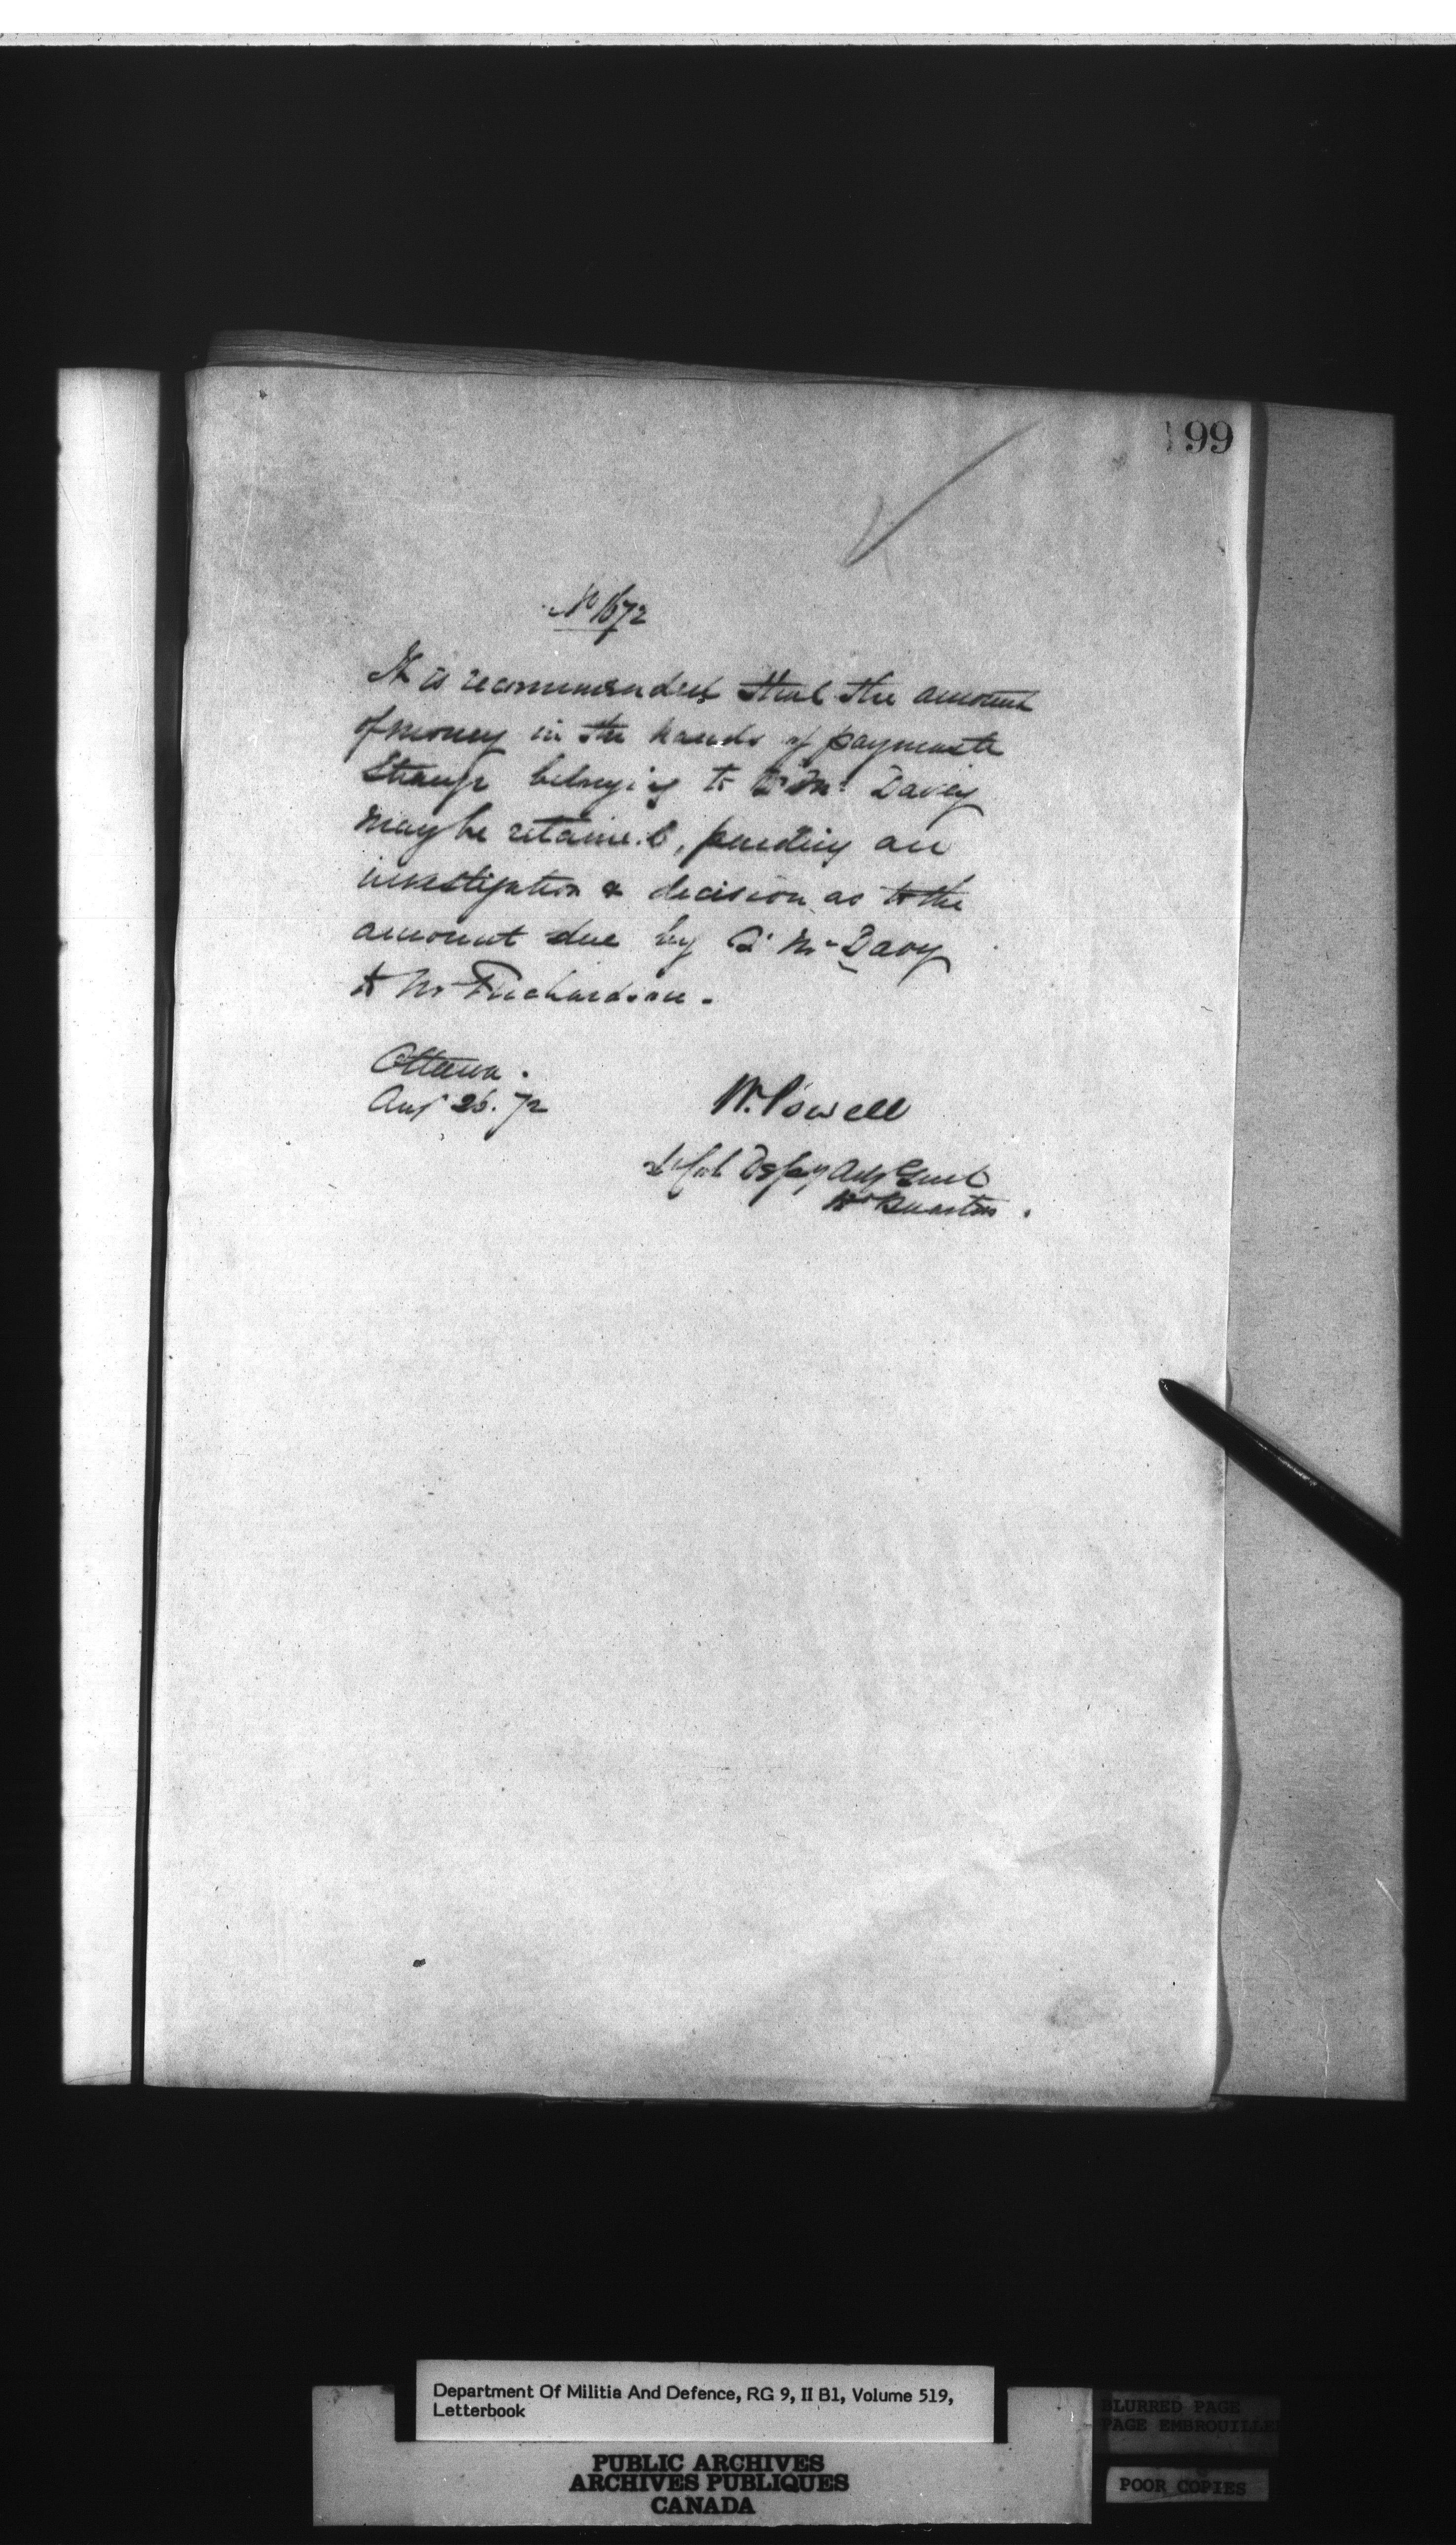 199
No 1672
It is recommended that the amount
of money in the hands of paymaste
Strange belonging to Qr Mr Davey
may be retained, pending an
investigation & decision as to the
amount due by Qr Mr Davy
to Mr Richardson.
Ottawa.
Aug 26. 72
W. Powell
Lt Col Depy Adjt Genl
Hd Quarters.
Department Of Militia And Defence, RG 9, II B1, Volume 519,
Letterbook
PUBLIC ARCHIVES
ARCHIVES PUBLIQUES
CANADA
BLURRED PAGE
PAGE EMBROUILLE
POOR COPIES